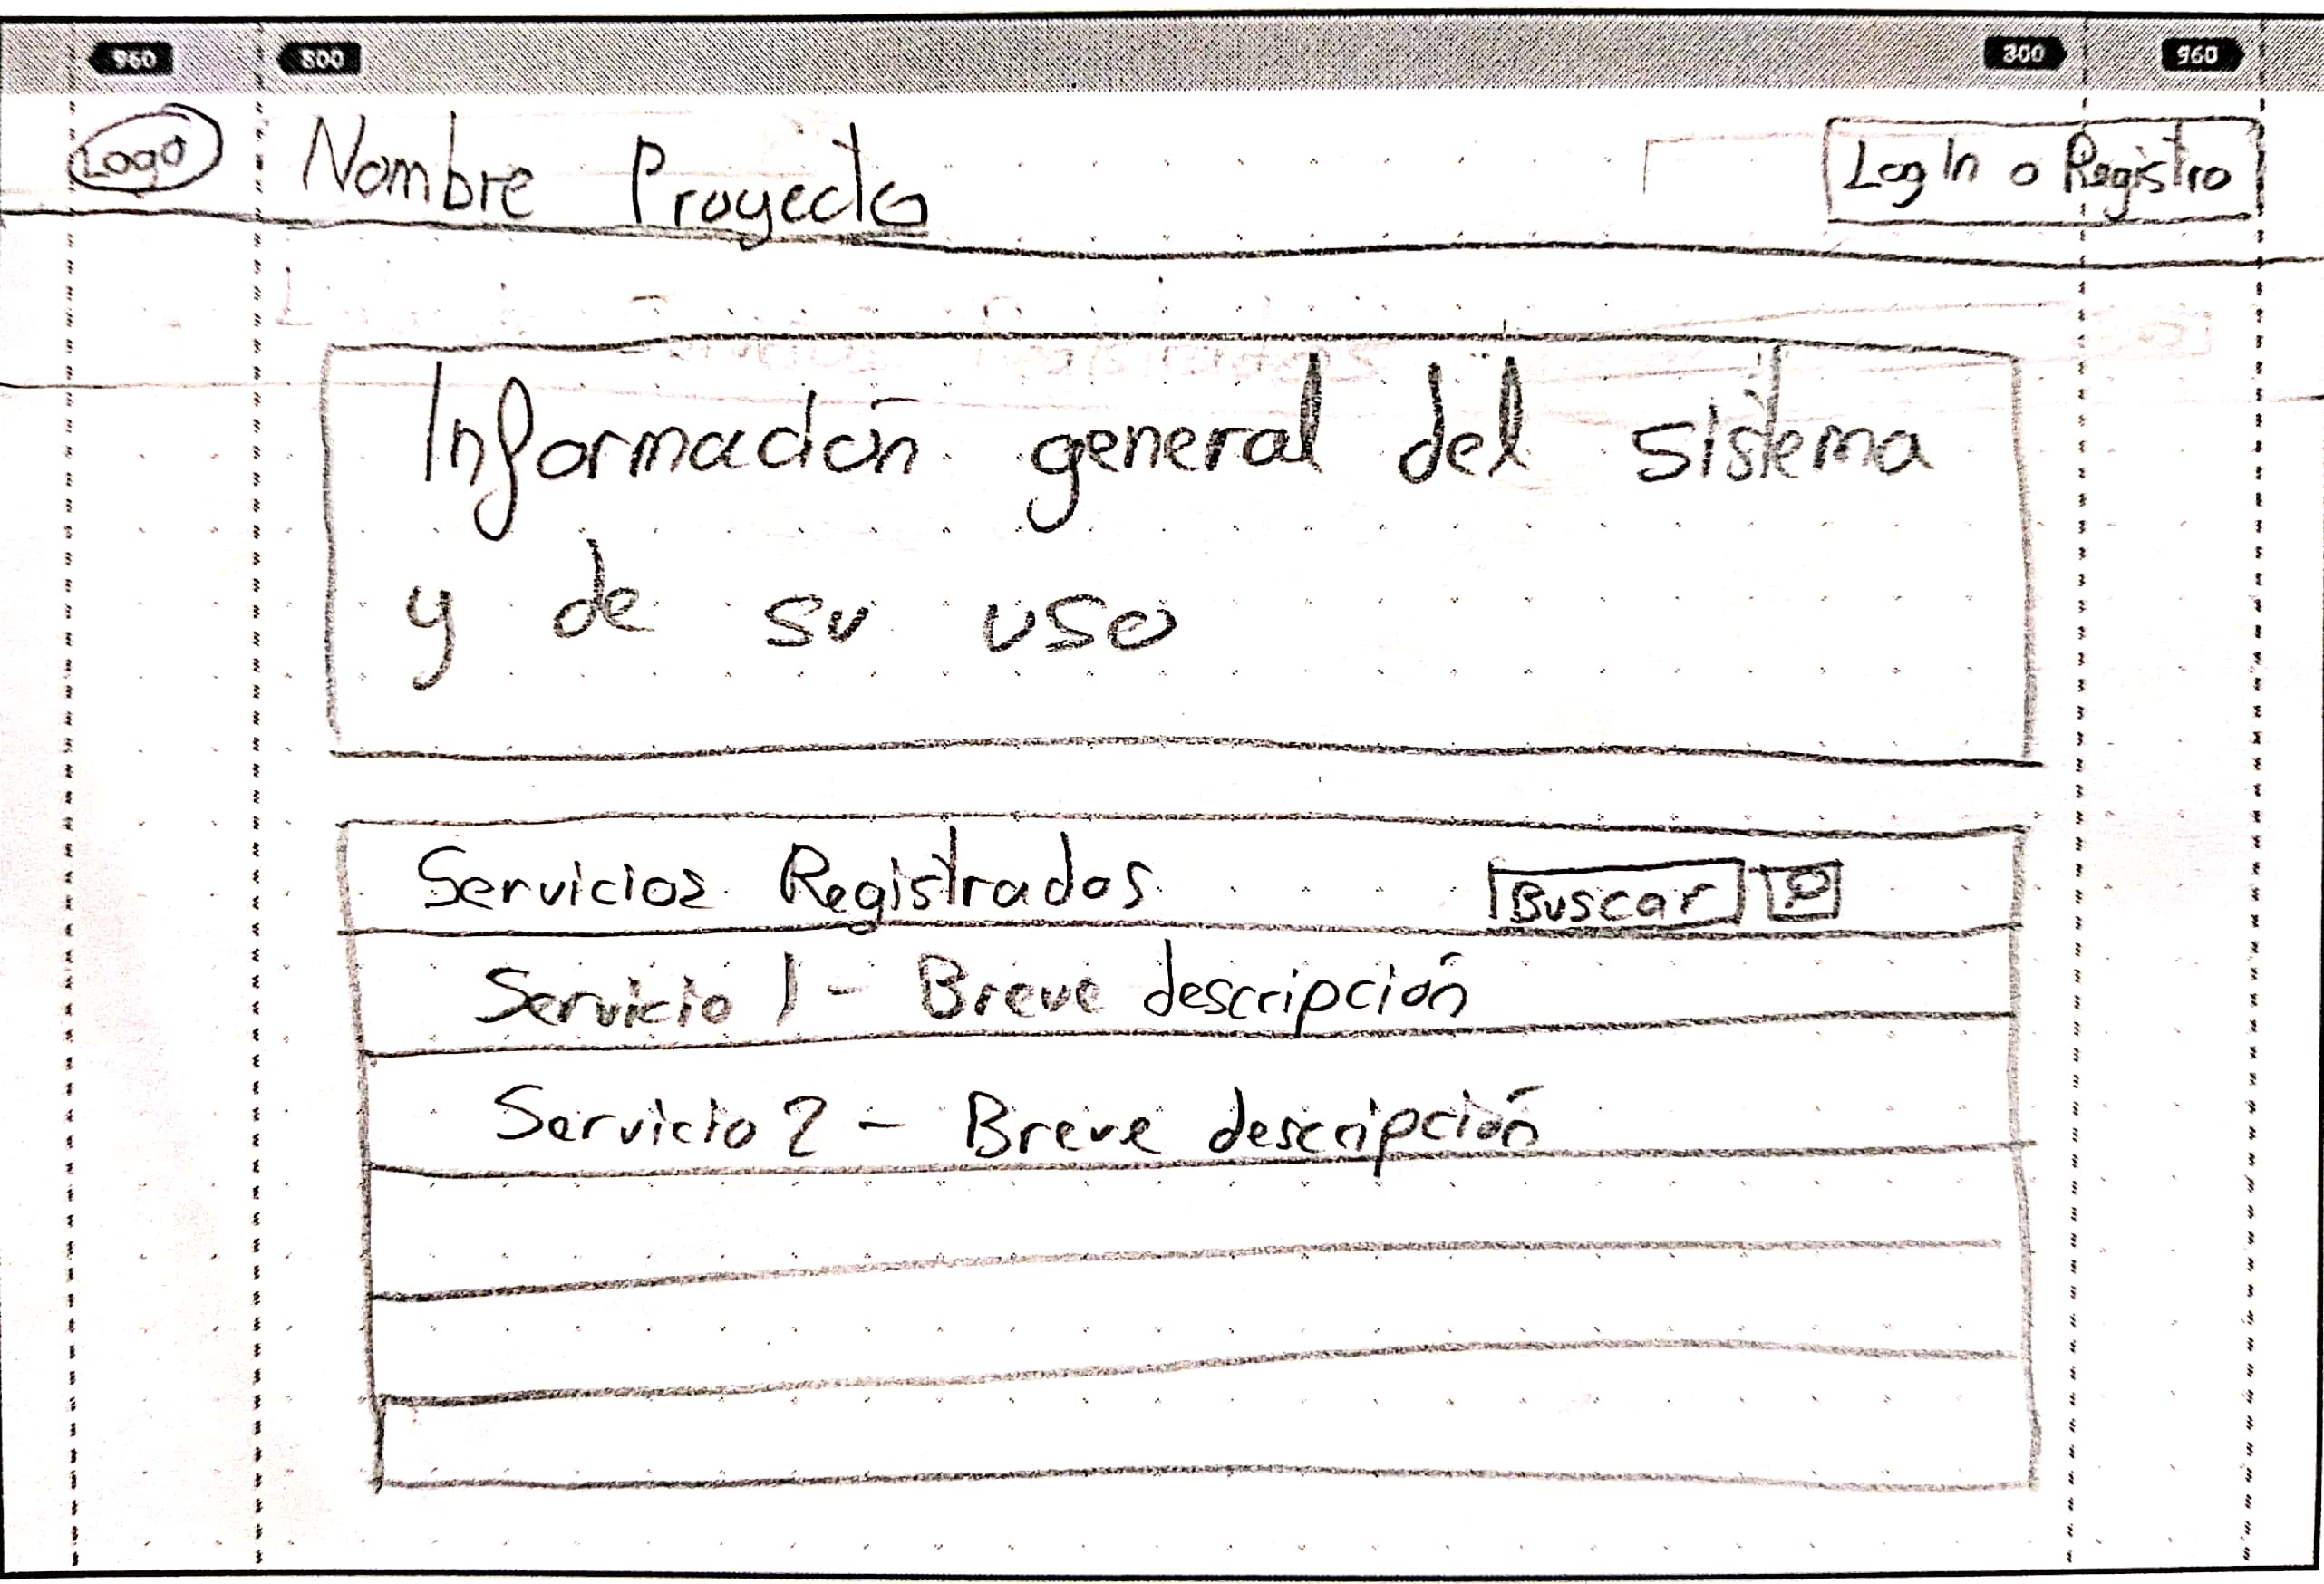 960 800 800 960
Logo Nombre Proyecto LogIn o Registro
Información general del sistema
y de su uso
Servicios Registrados Buscar
Servicio 1 - Breve descripción
Servicio 2 - Breve descripción